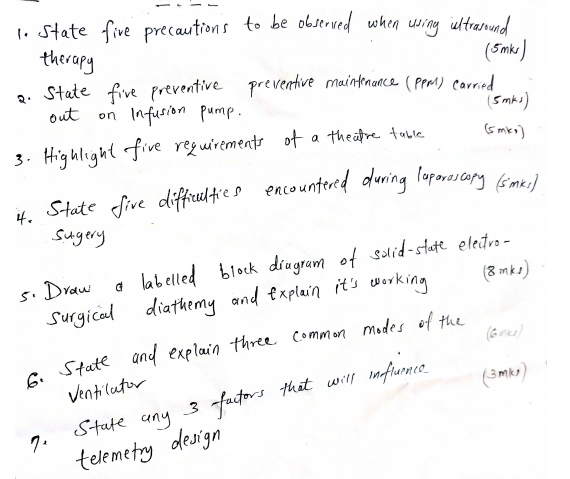 1. State five precautions to be observed when using ultrasound
therapy (5mks)
2. State five preventive preventive maintenance (PPM) carried
out on Infusion pump. (5mks)
3. Highlight five requirements of a theatre table (5mks)
4. State five difficulties encountered during laparascopy (5mks)
Sugery
5. Draw a labelled block diagram of solid-state electro-
surgical diathemy and Explain it's working (8mks)
6. State and explain three common modes of the
Ventilator (6mks)
7. State any 3 factors that will influence (3mks)
telemetry design